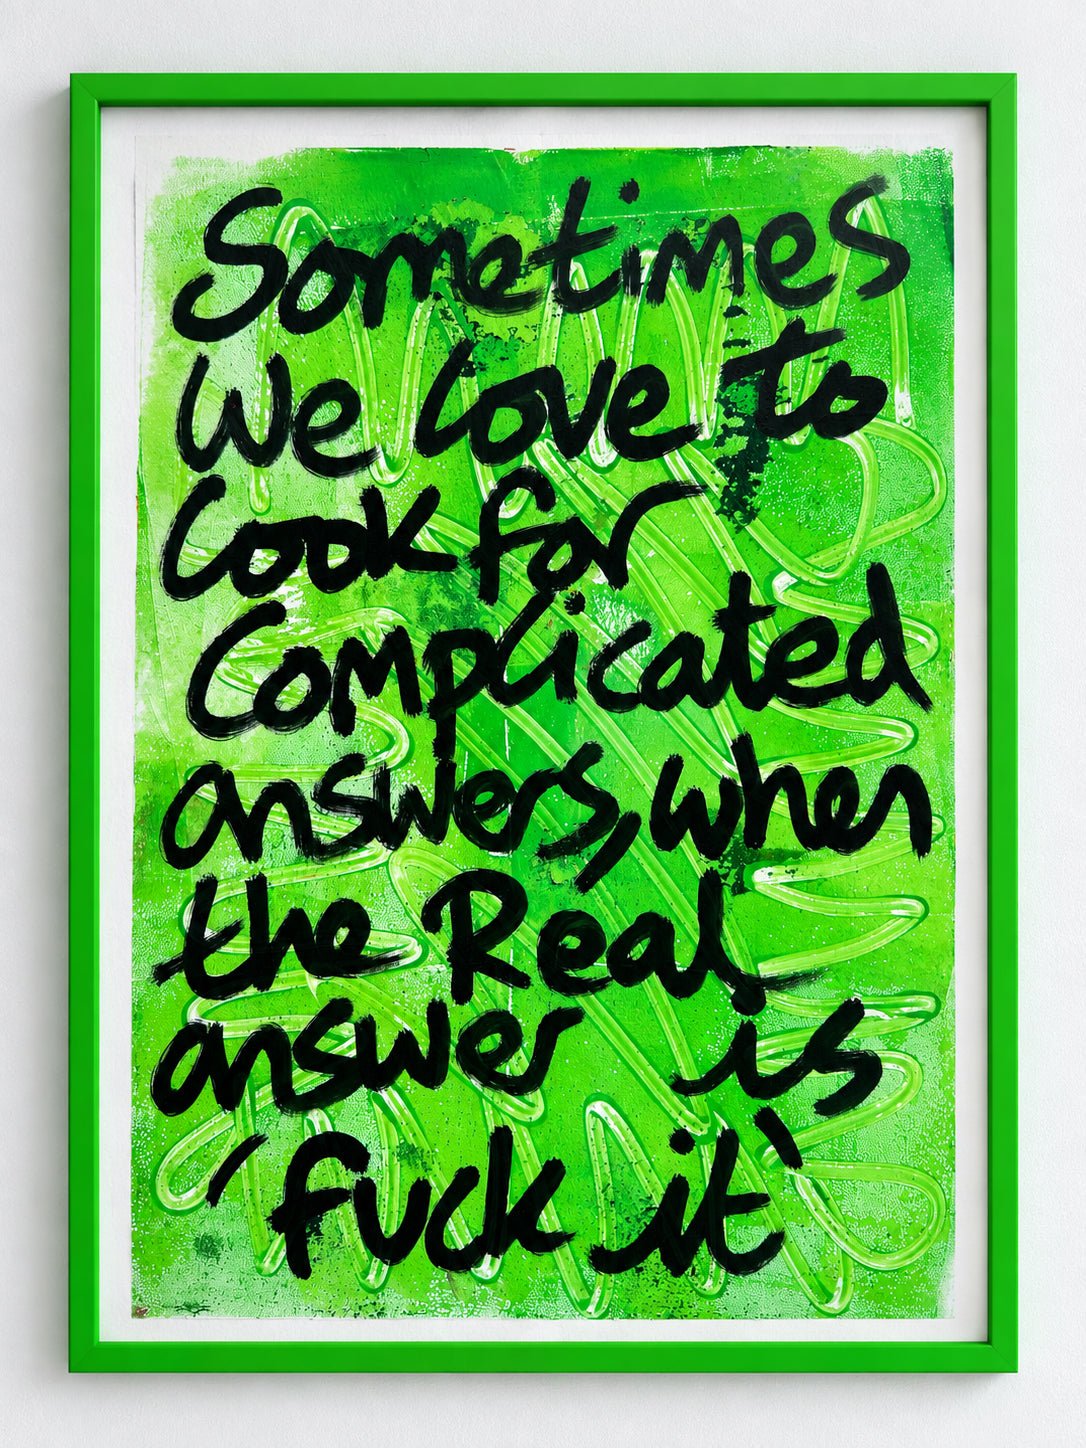 Sometimes
We love to
look for
Complicated
answers, when
the Real
answer is
'fuck it'